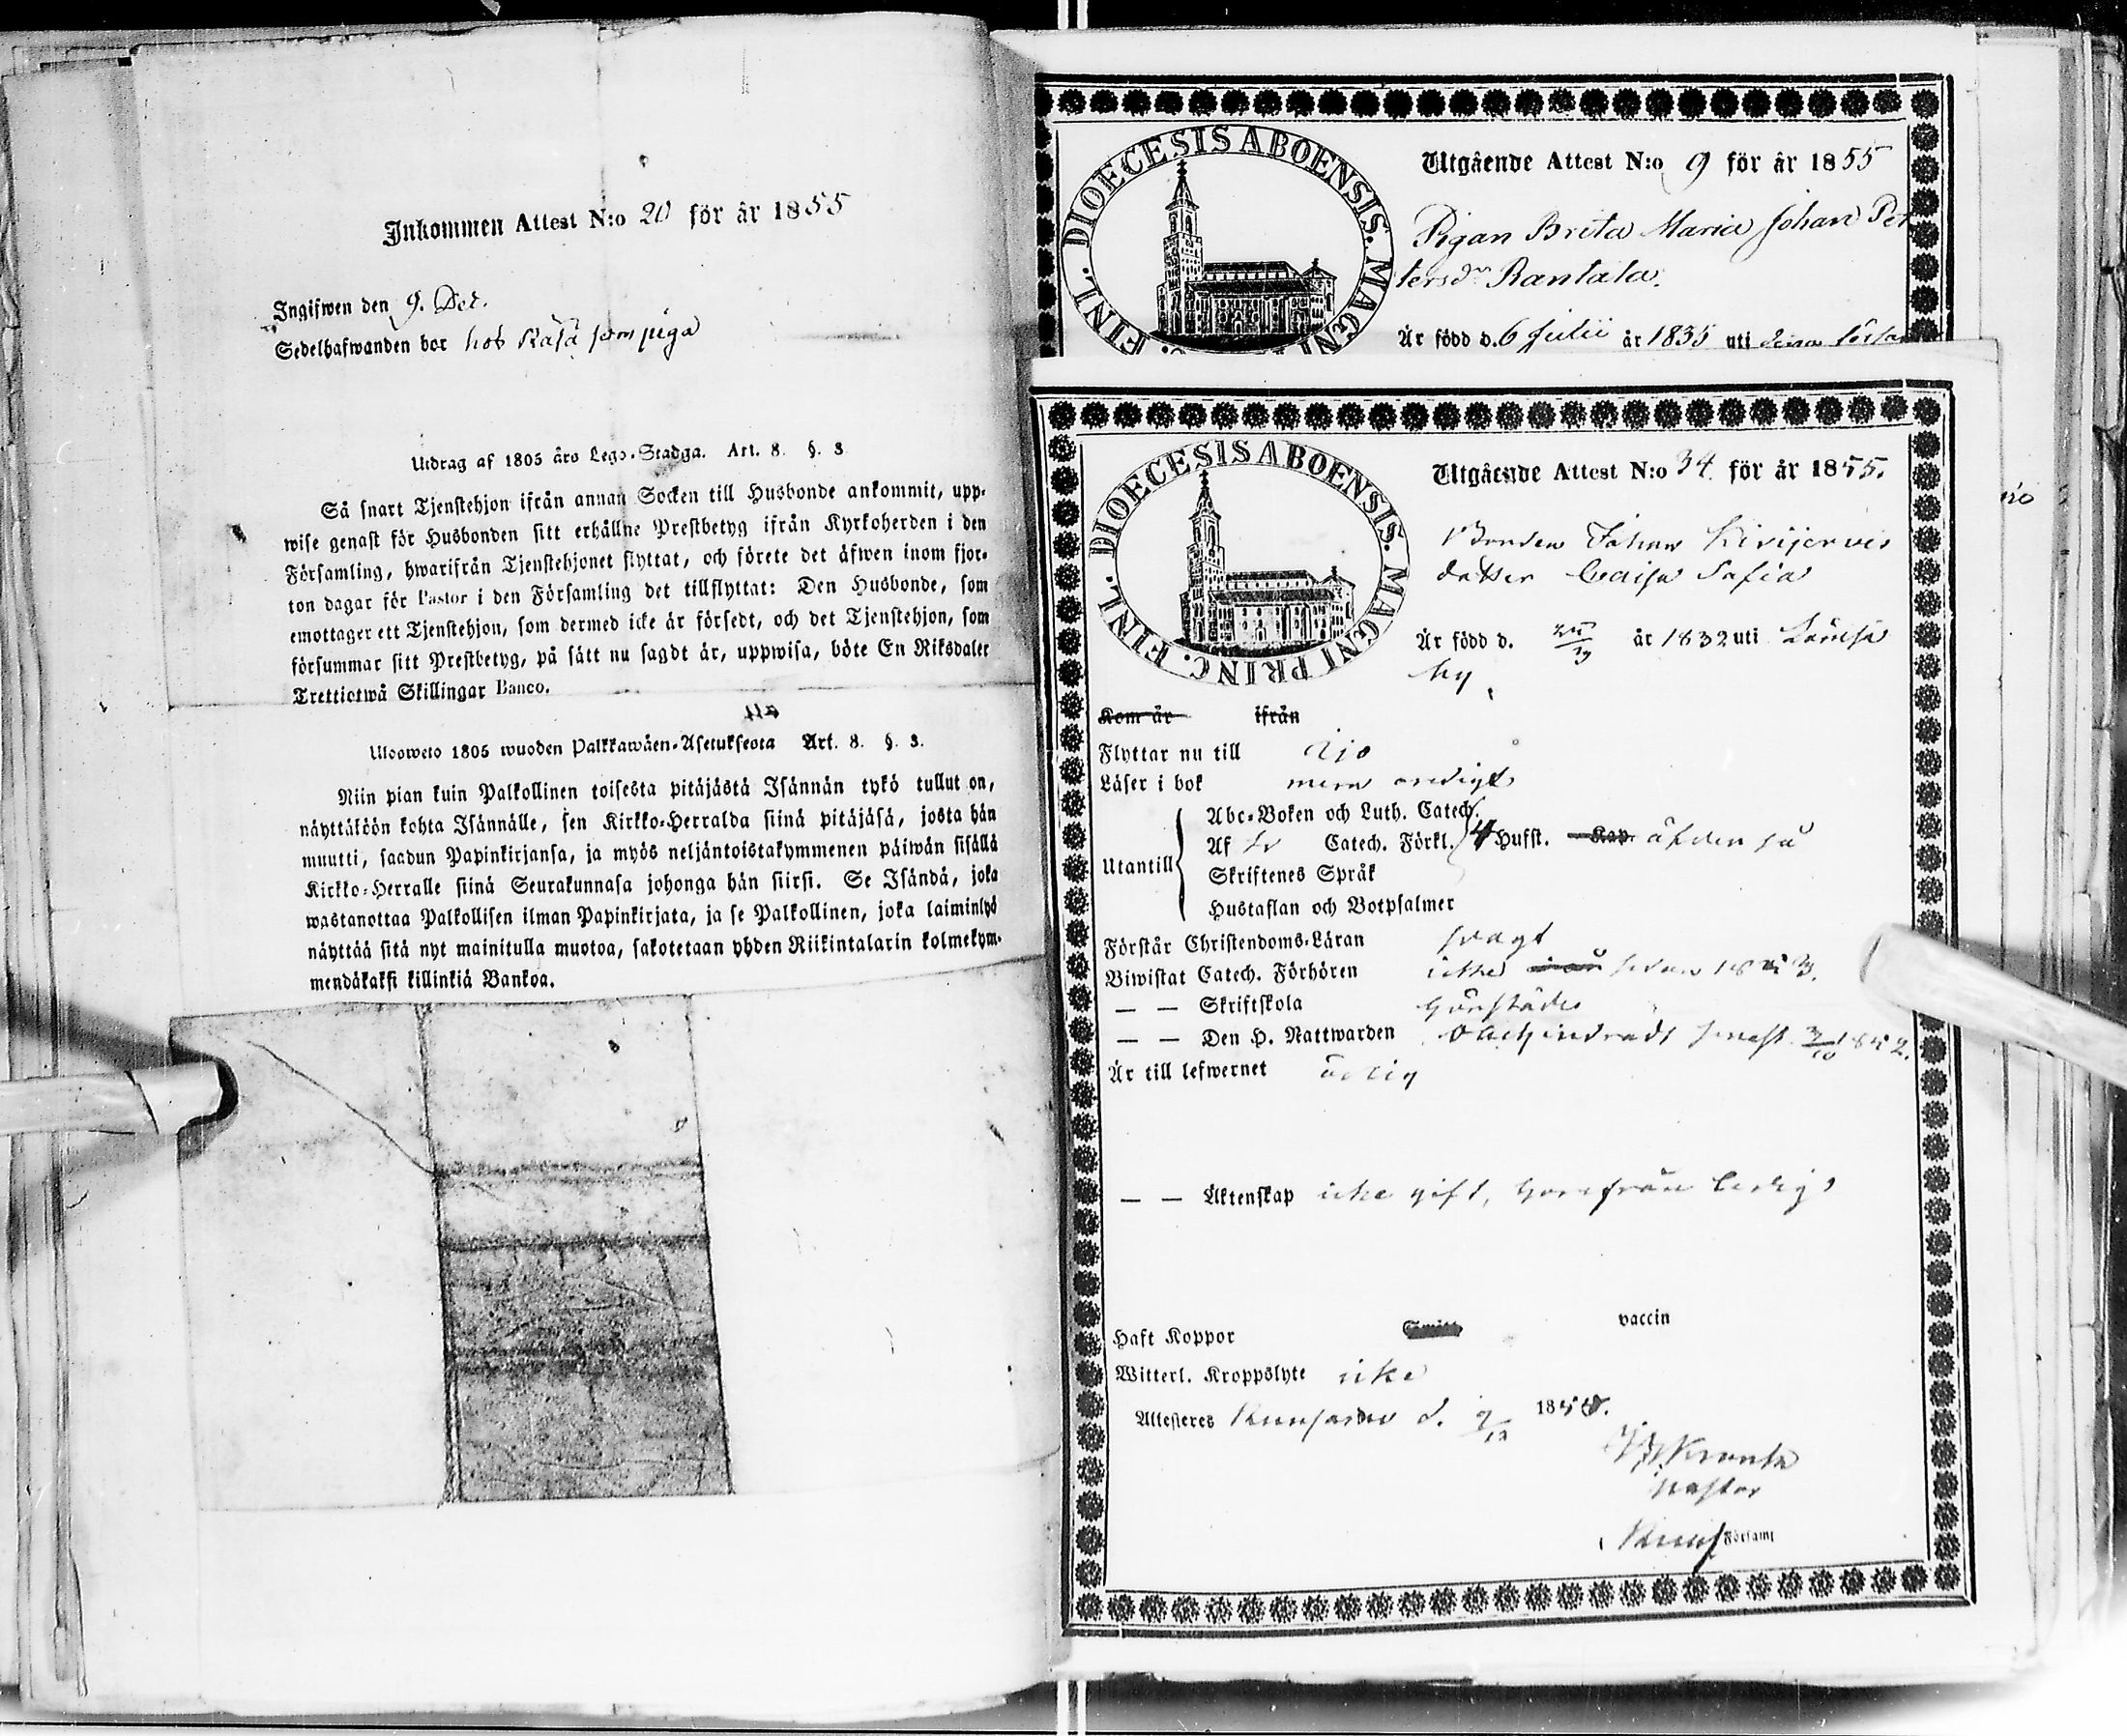 Inkommen Attest N:o 20 för år 1855
Ingifwen den 9. Dec.
Sedelhafwanden bor hos Rasa som piga
Utdrag af 1805 åro Lego-Stadga. Art. 8. §. 3
Så snart Tjenstehjon ifrån annan Socken till Husbonde ankommit, upp-
wise genast för Husbonden sitt erhållne Prestbetyg ifrån Kyrkoherden i den
Församling, hwarifrån Tjenstehjonet flyttat, och förete det äfwen inom fjor-
ton dagar för Pastor i den Församling det tillflyttat: Den Husbonde, som
emottager ett Tjenstehjon, som dermed icke är försedt, och det Tjenstehjon, som
försummar sitt Prestbetyg, på sätt nu sagdt är, uppwisa, böte En Riksdaler
Trettiotwå Skillingar Banco.
Ulosweto 1805 wuoden Palkkawäen-Asetuksesta Art. 8. §. 3.
Niin pian kuin Palkollinen toisesta pitäjästä Isännän tykö tullut on,
näyttäköön kohta Isännälle, sen Kirkko-Herralda siinä pitäjäsä, josta hän
muutti, saadun Papinkirjansa, ja myös neljäntoistakymmenen päiwän sisällä
Kirkko-Herralle siinä Seurakunnasa johonga hän siirsi. Se Isändä, joka
wastanottaa Palkollisen ilman Papinkirjata, ja se Palkollinen, joka laiminlyö
näyttää sitä nyt mainitulla muotoa, sakotetaan yhden Riikintalarin kolmekym-
mendäkaksi killinkiä Bankoa.
DIOECESIS ABOENSIS. MAGNI FINL.
Utgående Attest N:o 9 för år 1855
Pigan Brita Maria Johan Pet
tersdr Rantala.
Är född d. 6 Julii år 1835 uti
DIOECESIS ABOENSIS. MAGNI PRINC. FINL.
Utgående Attest N:o 34. för år 1855.
Bonden Johan Kivijervis
dotter Cajsa Sofia
Är född d. år 1832 uti
by
Kom år ifrån
Flyttar nu till
Läser i bok mera oredigt
Abc-Boken och Luth. Catech.
Utantill Af Catech. Förkl. 4 Hufst. Kap.
Skriftenes Språk
Hustaflan och Botpsalmer
Förstår Christendoms-Läran svagt
Biwistat Catech. Förhören icke sedan
— — Skriftskola
— — Den H. Nattwarden senast
Är till lefwernet ärlig
— — Äktenskap icke gift, härifrån ledig
Haft Koppor vaccin
Witterl. Kroppslyte icke
Attesteras d.
Pastor
Församl